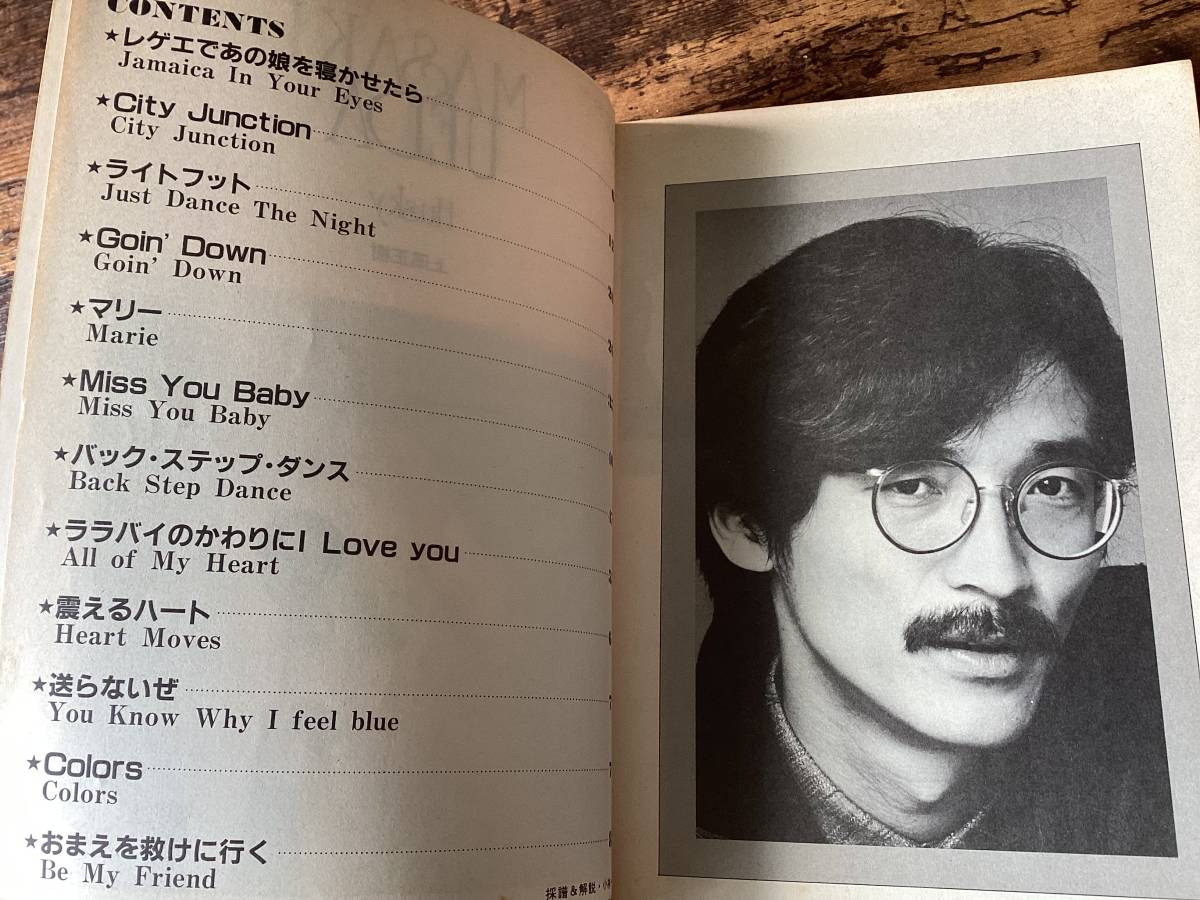 CONTENTS
★レゲエであの娘を寝かせたら
Jamaica In Your Eyes
★City Junction
City Junction
★ライトフット
Just Dance The Night
★Goin' Down
Goin' Down
★マリー
Marie
★Miss You Baby
Miss You Baby
★バック・ステップ・ダンス
Back Step Dance
★ララバイのかわりにI Love you
All of My Heart
★震えるハート
Heart Moves
★送らないぜ
You Know Why I feel blue
★Colors
Colors
★おまえを救けに行く
Be My Friend
採譜&解説・小